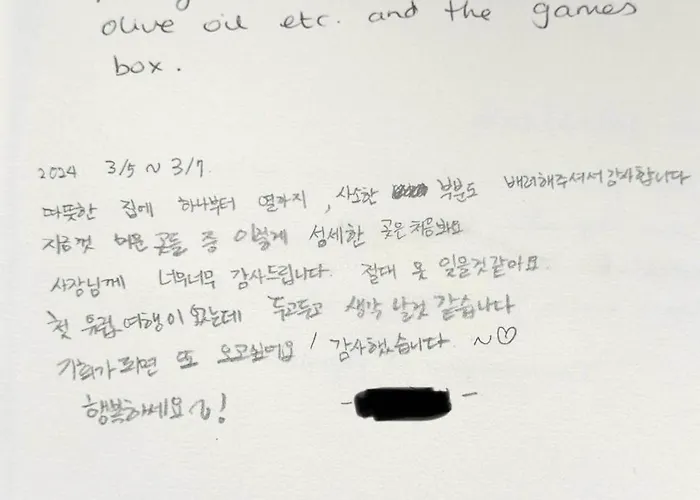 olive oil etc. and the games
box.
2024 3/5 ~ 3/7.
따뜻한 집에 하나부터 열까지, 사소한 부분도 배려해주셔서 감사합니다
지금껏 머문 곳들 중 이렇게 섬세한 곳은 처음봐요
사장님께 너무너무 감사드립니다. 절대 못 잊을것같아요.
첫 유럽여행이 었는데 두고두고 생각 날것 같습니다
기회가 되면 또 오고싶어요! 감사했습니다. ~♡
행복하세요!